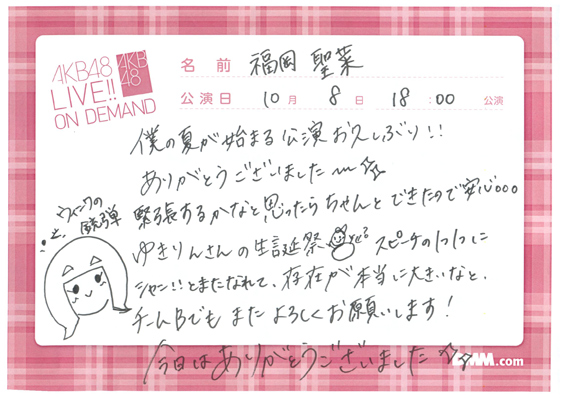 AKB48
LIVE!!
ON DEMAND
AKB
48
名前 福岡 聖菜
公演日 10月 8日 18:00 公演
僕の夏が始まる公演お久しぶり!!
ありがとうございました〜☆☆
緊張するかなと思ったらちゃんとできたので安心。。。
ウィンクの
銃弾
ゆきりんさんの生誕祭 スピーチの1つ1つに
シャン!!とまたなれて、存在が本当に大きいなと、
チームBでもまたよろしくお願いします!
今日はありがとうございました☆☆
.com